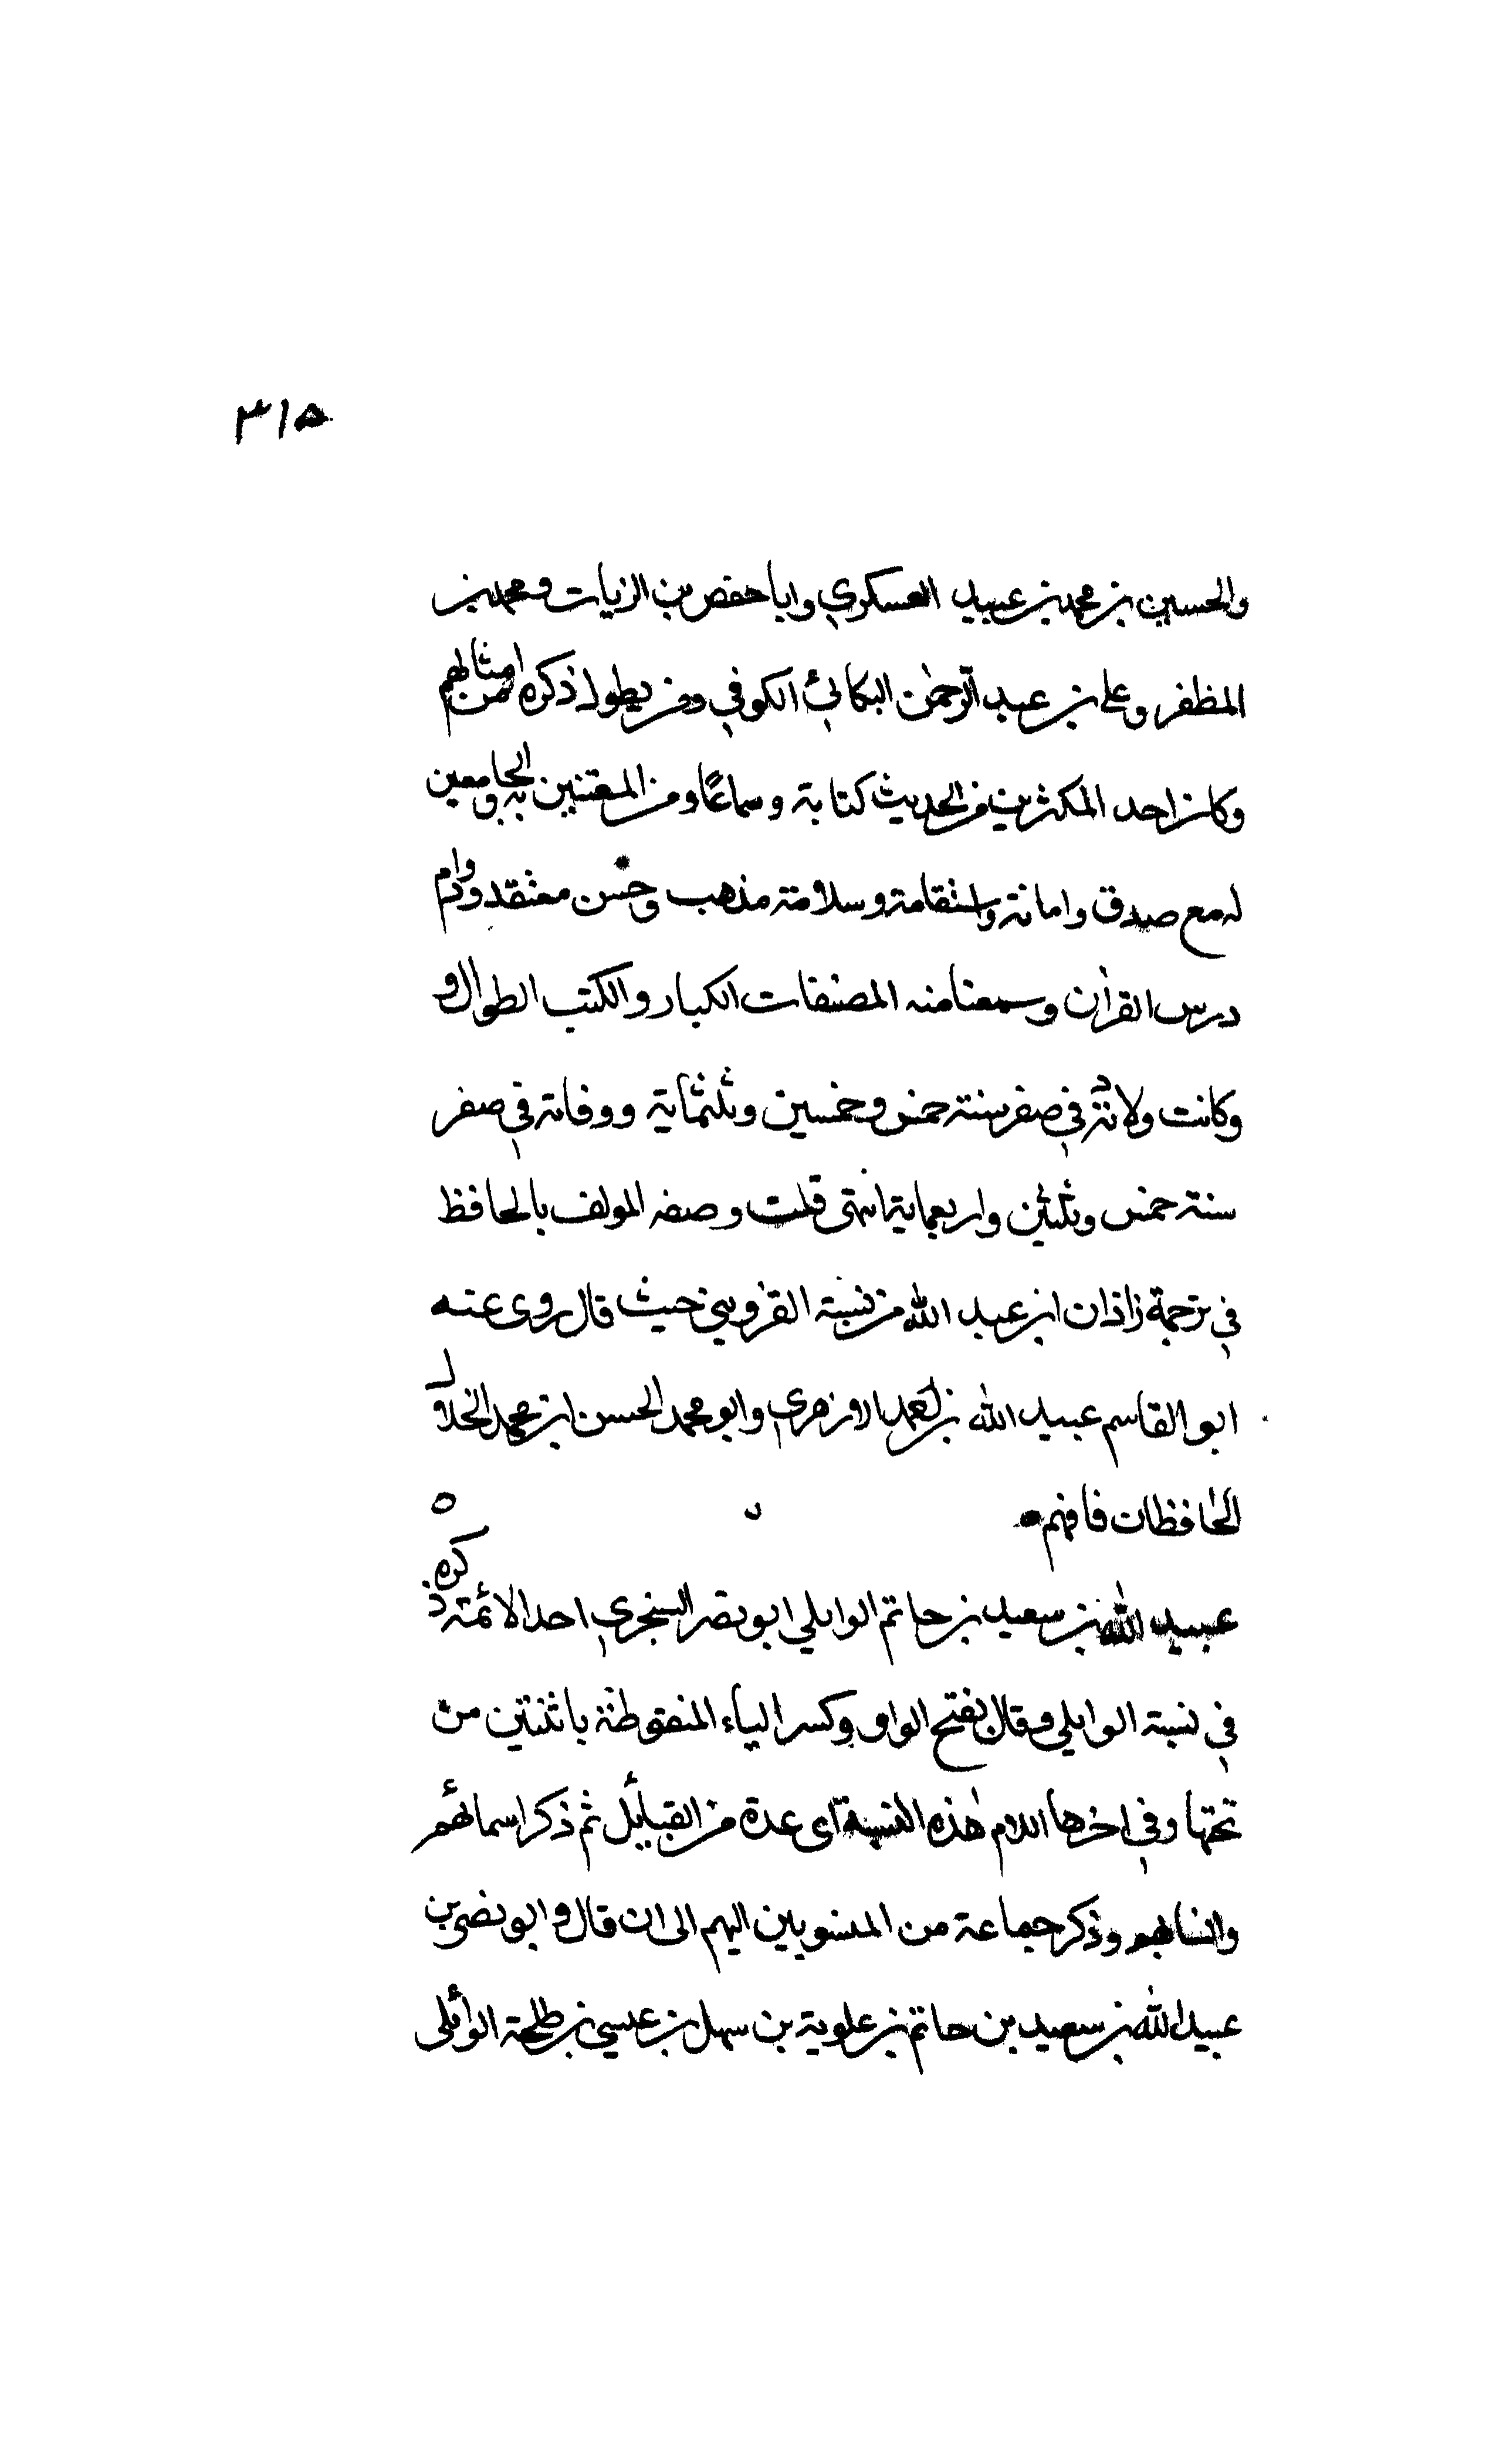 ٣١٥
والحسين بن محمد بن عبيد العسكري وابا حفص بن الزيات ومحمد بن
المظفر وعلى بن عبد الرحمن البكائي الكوفي ومن يطول ذكره من امثالهم
وكان احد المكثرين من الحديث كتابة وسماعًا ومن المعتنين به والجامعين
له مع صدق وامانة واستقامة وسلامة مذهب وحسن معتقد ودوام
درس القرآن وسمعنا منه المصنفات الكبار والكتب الطوال و
وكانت ولادته في صفر سنة خمس وخمسين وثلثماية ووفاته في صفر
سنة خمس وثلثين واربعماية انتهى قلت وصفه المولف بالحافظ
في ترجمة زاذان ابن عبد الله من نسبة القزويني حيث قال روى عنه
ابو القاسم عبيد الله بن احمد الازهري وابو محمد الحسن ابن محمد الخلال
الحافظان فافهم
عبيد الله بن سعيد بن حاتم الوايلي ابو نصر السنجري احد الائمة ذكره
في نسبة الوايلي وقال بفتح الواو وكسر الياء المنقوطة باثنتين من
تحتها وفي اخرها اللام هذه النسبة اى عدة من القبايل ثم ذكر اسمائهم
وانسابهم وذكر جماعة من المنسوبين اليهم الى ان قال وابو نصر بن
عبيد الله بن سعيد بن حاتم بن علوية بن سهل بن عيسي بن طلحة الوائلى